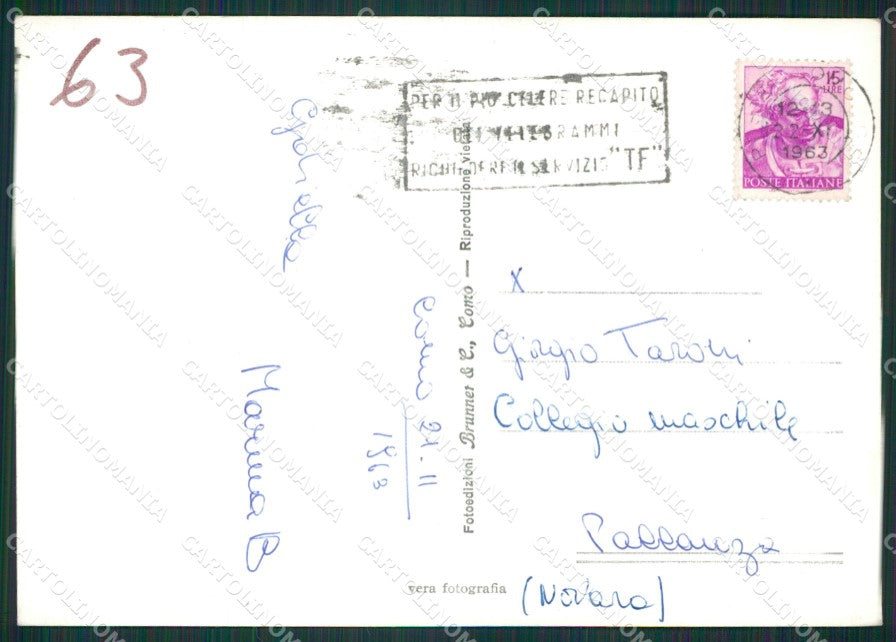 63
PER IL PIÙ CELERE RECAPITO
DEI TELEGRAMMI
RICHIEDERE IL SERVIZIO "TF"
15
LIRE
12-13
22 XI
1963
POSTE ITALIANE
Como 21.11
1963
Marinna B
X
Giorgio Taroni
Collegio maschile
Pallanza
(Novara)
Fotoedizioni Brunner & C., Como — Riproduzione vietata
vera fotografia
CARTOLINOMANIA